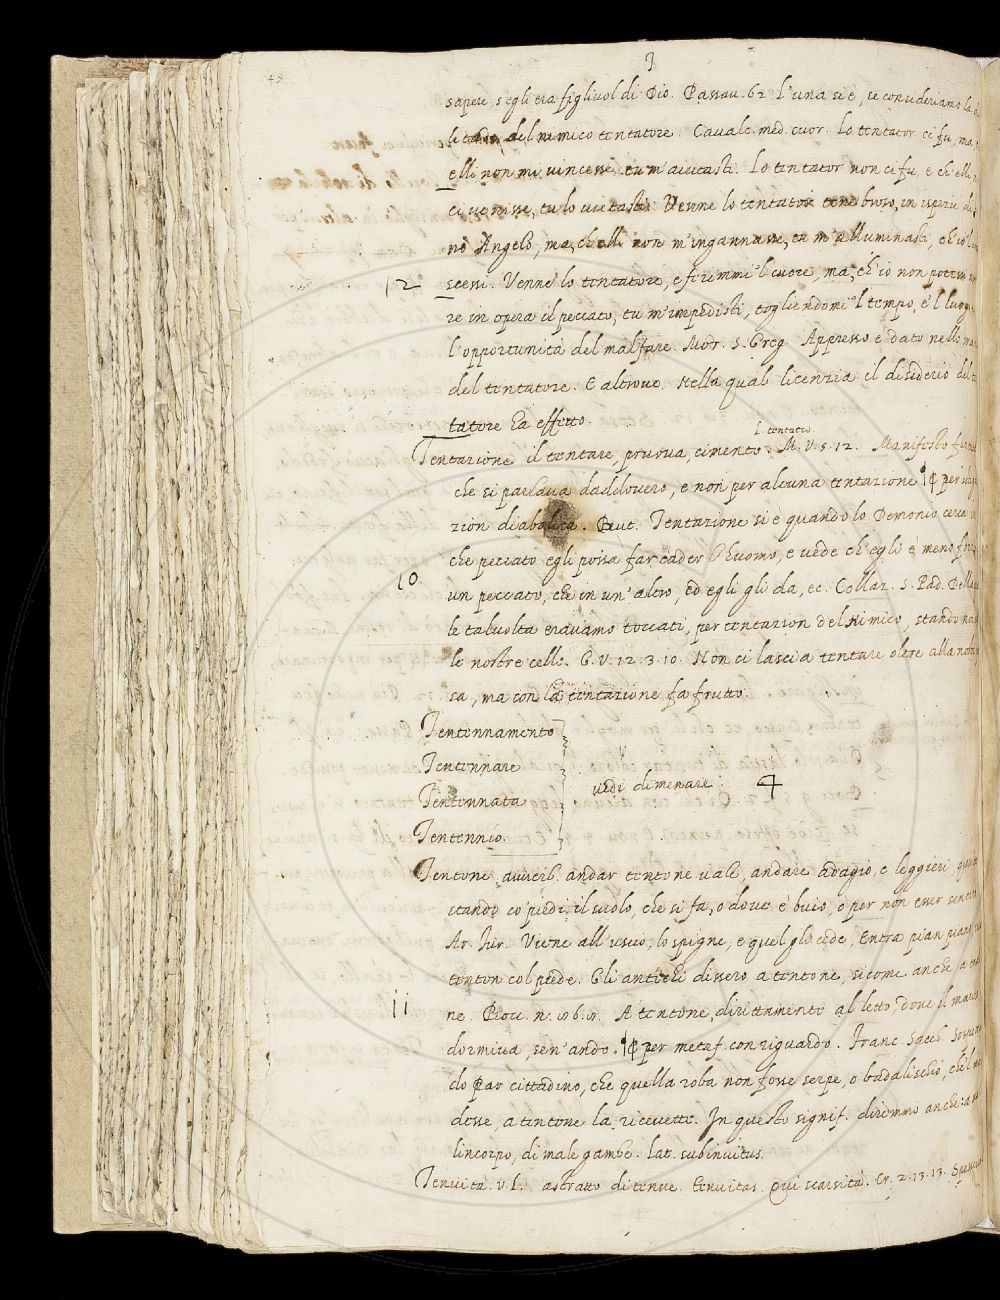 sapere, s'egli era figliuol di Dio. Passav. 62. L'una si è, se consideriamo la
del nimico tentatore. Cavalc. med. cuor. Lo tentator ci fu, ma
elli non mi vincesse, tu m'aiutasti. Lo tentator non ci fu, e ch'elli
ci venisse, tu lo vietasti. Venne lo tentator tenebroso, in ispezie di
no Angelo, ma, ch'elli non m'ingannasse, tu m'alluminasti, ch'io 'l
12
scessi. Venne lo tentatore, e fremmi 'l cuore, ma, ch'io non potessi
re in opera il peccato, tu m'impedisti, togliendomi 'l tempo, e 'l
l'opportunità del malfare. Mor. S. Greg. Appresso è dato nelle
del tentatore. E altrove. Nella quale licenzia il disiderio del
tatore ha effetto.
L. tentatio
Tentazione il tentare, pruova, cimento. M. V. 5. 12. Manifesto
che si parlava daddovero, e non per alcuna tentazione ¶ per
zion diabolica. But. Tentazione si è quando lo Demonio cerca
che peccato egli possa far cader l'huomo, e vede ch'egli è meno
10
un peccato, che in un'altro, ed egli gli da, ec. Collaz. S. Pad. Delle
le talvolta eravamo toccati, per tentazion del Nimico, stando
le nostre celle. G. V. 12. 3. 10. Non ci lascia tentare oltre alla nostra
sa, ma con la tentazione fa frutto.
Tentennamento
Tentennare
vedi dimenare. 4
Tentennata
Tentennio.
Tentone avverb. andar tentone vale, andare adagio, e leggieri
stando co' piedi, il suolo, che si fa, o dove è buio, o per non esser
Ar. Fur. Viene all'uscio, lo spigne, e quel gli cede, Entra pian piano
tenton col piede. Gli antichi dissero a tentone, sicome anche a
11
ne. Bocc. n. A tentone, dirittamente al letto, dove il
dormiva, sen'andò. ¶ per metaf. con riguardo. Franc. Sacch.
do par cittadino, che quella roba non fosse serpe, o badalischio, che 'l
desse, a tentone la ricevette. In questo signif. diremmo anche: a
lincorpo, di male gambe. Lat. subinvitus.
Tenuità. v. L. astratto di tenue. tenuitas. Qui scarsità. Cr. 2. 13. 13.